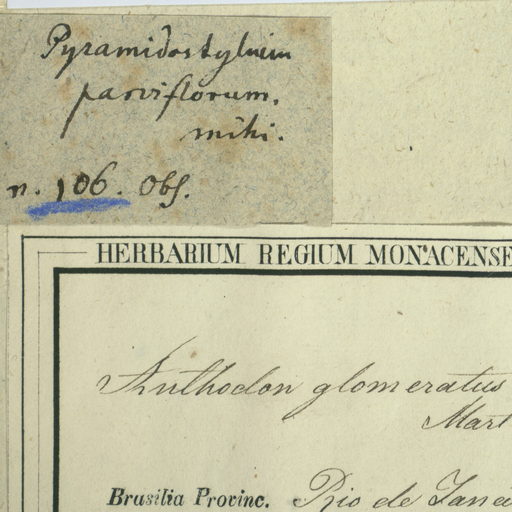 Pyramidostylium
parviflorum.
mihi.
n. 106. Obs.
HERBARIUM REGIUM MONACENSE
Anthodon glomeratus
Mart
Brasilia Provinc. Rio de Jane